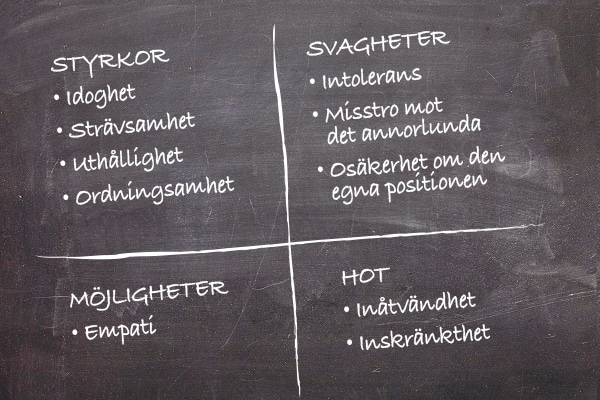 STYRKOR
• Idoghet
• Strävsamhet
• Uthållighet
• Ordningsamhet
SVAGHETER
• Intolerans
• Misstro mot
det annorlunda
• Osäkerhet om den
egna positionen
MÖJLIGHETER
• Empati
HOT
• Inåtvändhet
• Inskränkthet